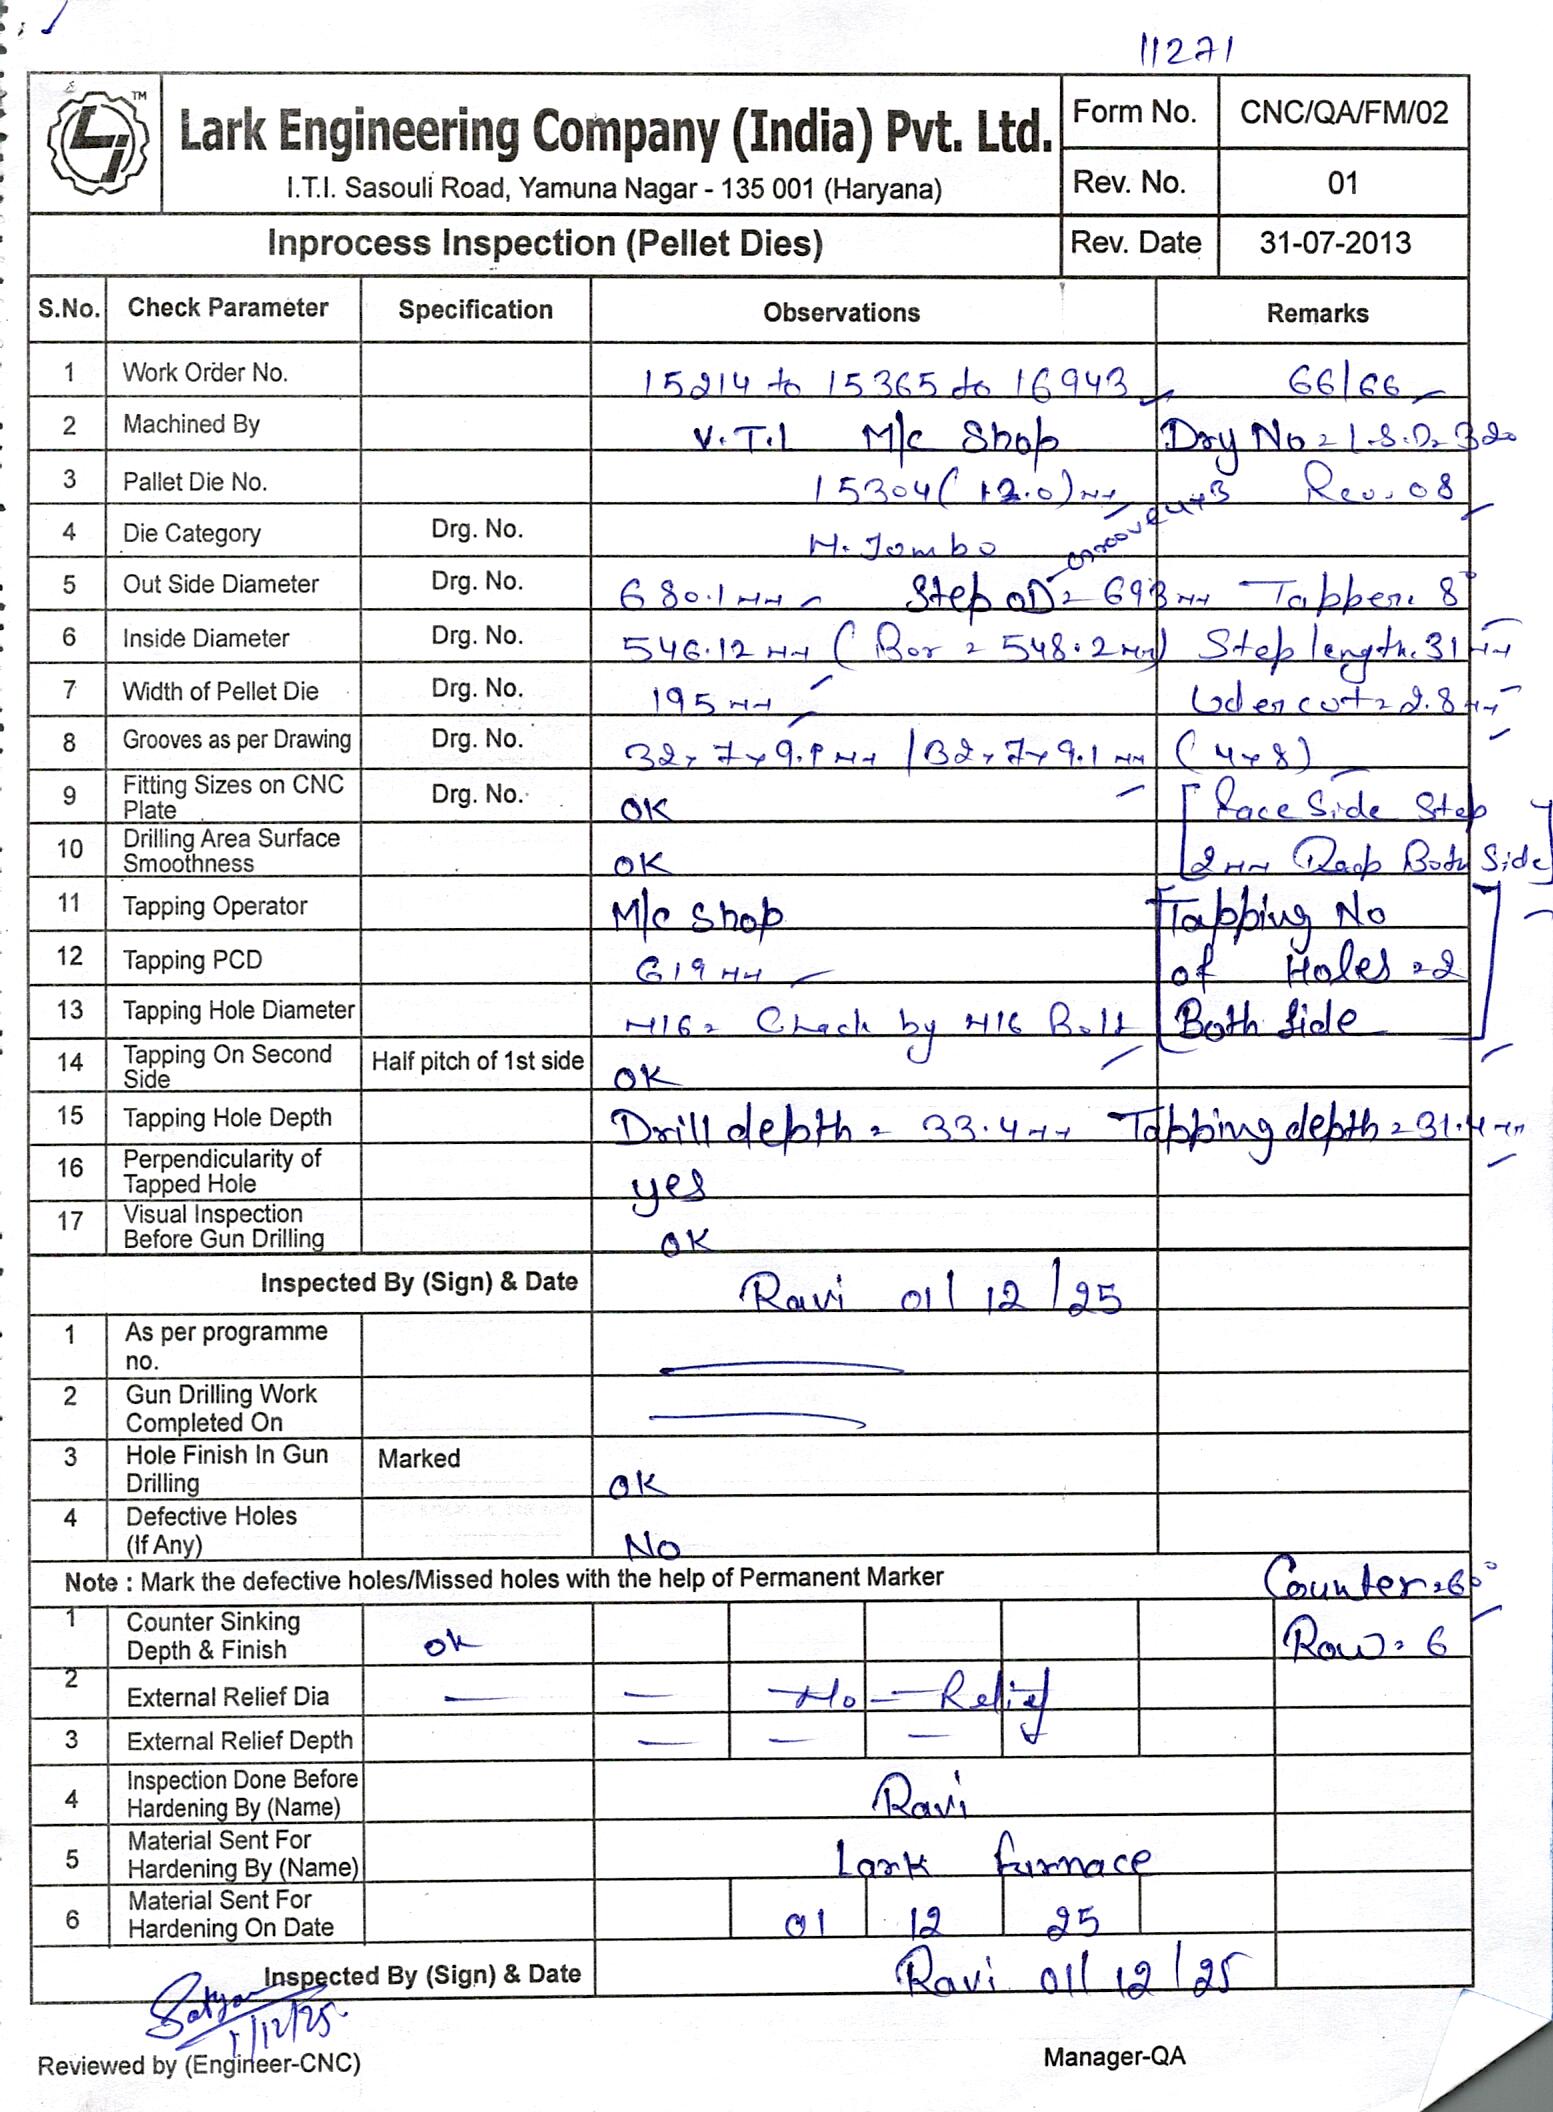 11271
Lark Engineering Company (India) Pvt. Ltd.
I.T.I. Sasouli Road, Yamuna Nagar - 135 001 (Haryana)
Form No. CNC/QA/FM/02
Rev. No. 01
Inprocess Inspection (Pellet Dies) Rev. Date 31-07-2013
S.No. Check Parameter Specification Observations Remarks
1 Work Order No. 15214 to 15365 to 16943 66/66
2 Machined By V.T.L M/c Shop Drg No = L.S.D. 320
3 Pallet Die No. 15304 (12.0) Rev. 08
4 Die Category Drg. No. H. Jombo Groove 4x3
5 Out Side Diameter Drg. No. 680.1 mm Step OD = 693 mm Tapper. 8°
6 Inside Diameter Drg. No. 546.12 mm (Bor = 548.2 mm) Step length. 31 mm
7 Width of Pellet Die Drg. No. 195 mm Udercut = 2.8 mm
8 Grooves as per Drawing Drg. No. 32 x 7 x 9.1 mm / 32 x 7 x 9.1 mm (4x8)
9 Fitting Sizes on CNC Plate Drg. No. OK [Face Side Step
10 Drilling Area Surface Smoothness OK 2 mm Deep Both Side]
11 Tapping Operator M/c Shop [Tapping No
12 Tapping PCD 619 mm of Holes = 2
13 Tapping Hole Diameter M16 = Check by M16 Bolt Both Side]
14 Tapping On Second Side Half pitch of 1st side OK
15 Tapping Hole Depth Drill depth = 33.4 mm Tapping depth = 31.4 mm
16 Perpendicularity of Tapped Hole yes
17 Visual Inspection Before Gun Drilling OK
Inspected By (Sign) & Date Ravi 01/12/25
1 As per programme no.
2 Gun Drilling Work Completed On
3 Hole Finish In Gun Drilling Marked OK
4 Defective Holes (If Any) No
Note : Mark the defective holes/Missed holes with the help of Permanent Marker Counter = 60°
1 Counter Sinking Depth & Finish ok Row = 6
2 External Relief Dia — — No — Relief
3 External Relief Depth — — —
4 Inspection Done Before Hardening By (Name) Ravi
5 Material Sent For Hardening By (Name) Lark furnace
6 Material Sent For Hardening On Date 01 12 25
Inspected By (Sign) & Date Ravi 01/12/25
1/12/25.
Reviewed by (Engineer-CNC) Manager-QA